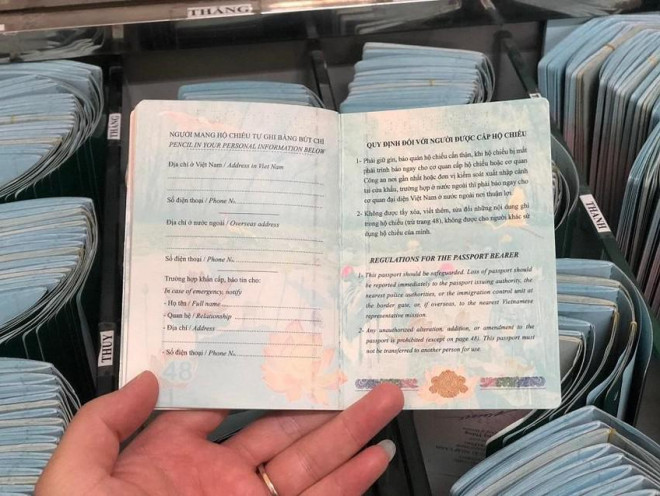 THẮNG
THẮNG
THỦY
THÀNH
NGƯỜI MANG HỘ CHIẾU TỰ GHI BẰNG BÚT CHÌ
PENCIL IN YOUR PERSONAL INFORMATION BELOW
Địa chỉ ở Việt Nam / Address in Viet Nam
Số điện thoại / Phone No
Địa chỉ ở nước ngoài / Overseas address
Số điện thoại / Phone No
Trường hợp khẩn cấp, báo tin cho:
In case of emergency, notify
- Họ tên / Full name
- Quan hệ / Relationship
- Địa chỉ / Address
- Số điện thoại / Phone No
48
QUY ĐỊNH ĐỐI VỚI NGƯỜI ĐƯỢC CẤP HỘ CHIẾU
1- Phải giữ gìn, bảo quản hộ chiếu cẩn thận, khi hộ chiếu bị mất
phải trình báo ngay cho cơ quan cấp hộ chiếu hoặc cơ quan
Công an nơi gần nhất hoặc đơn vị kiểm soát xuất nhập cảnh
tại cửa khẩu, trường hợp ở nước ngoài thì phải báo ngay cho
cơ quan đại diện Việt Nam ở nước ngoài nơi thuận lợi.
2- Không được tẩy xóa, viết thêm, sửa đổi những nội dung ghi
trong hộ chiếu (trừ trang 48), không được cho người khác sử
dụng hộ chiếu của mình.
REGULATIONS FOR THE PASSPORT BEARER
1- This passport should be safeguarded. Loss of passport should
be reported immediately to the passport issuing authority, the
nearest police authorities, or the immigration control unit at
the border gate, or, if overseas, to the nearest Vietnamese
representative mission.
2- Any unauthorized alteration, addition, or amendment to the
passport is prohibited (except on page 48). This passport must
not be transferred to another person for use.